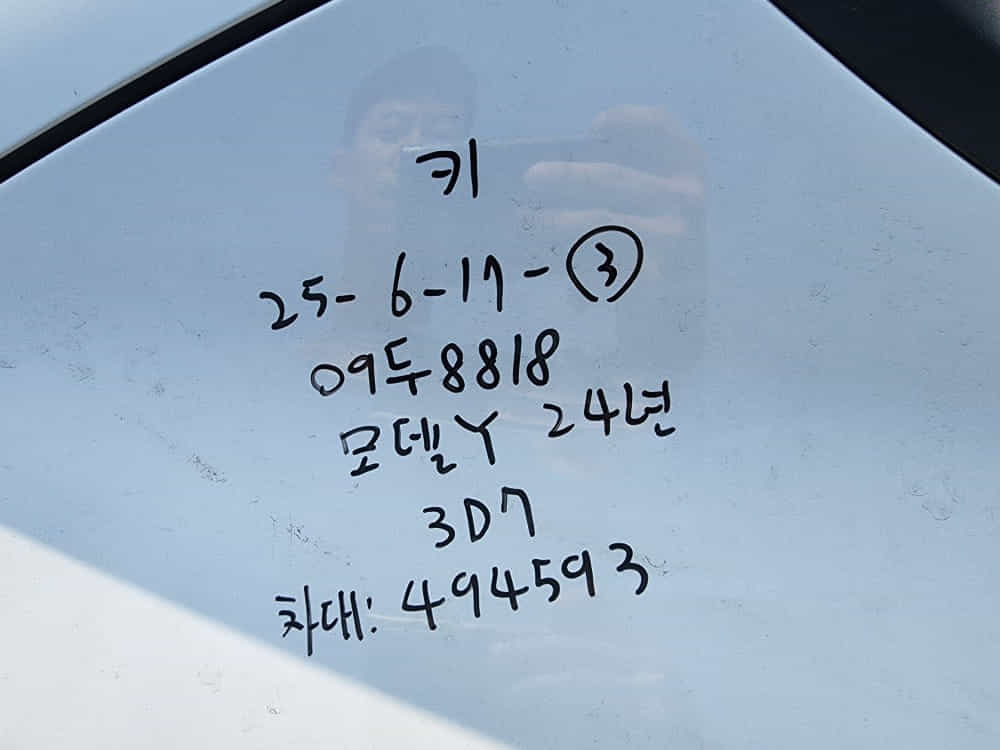 키
25-6-17-③
09두8818
모델Y 24년
3D7
차대: 494593